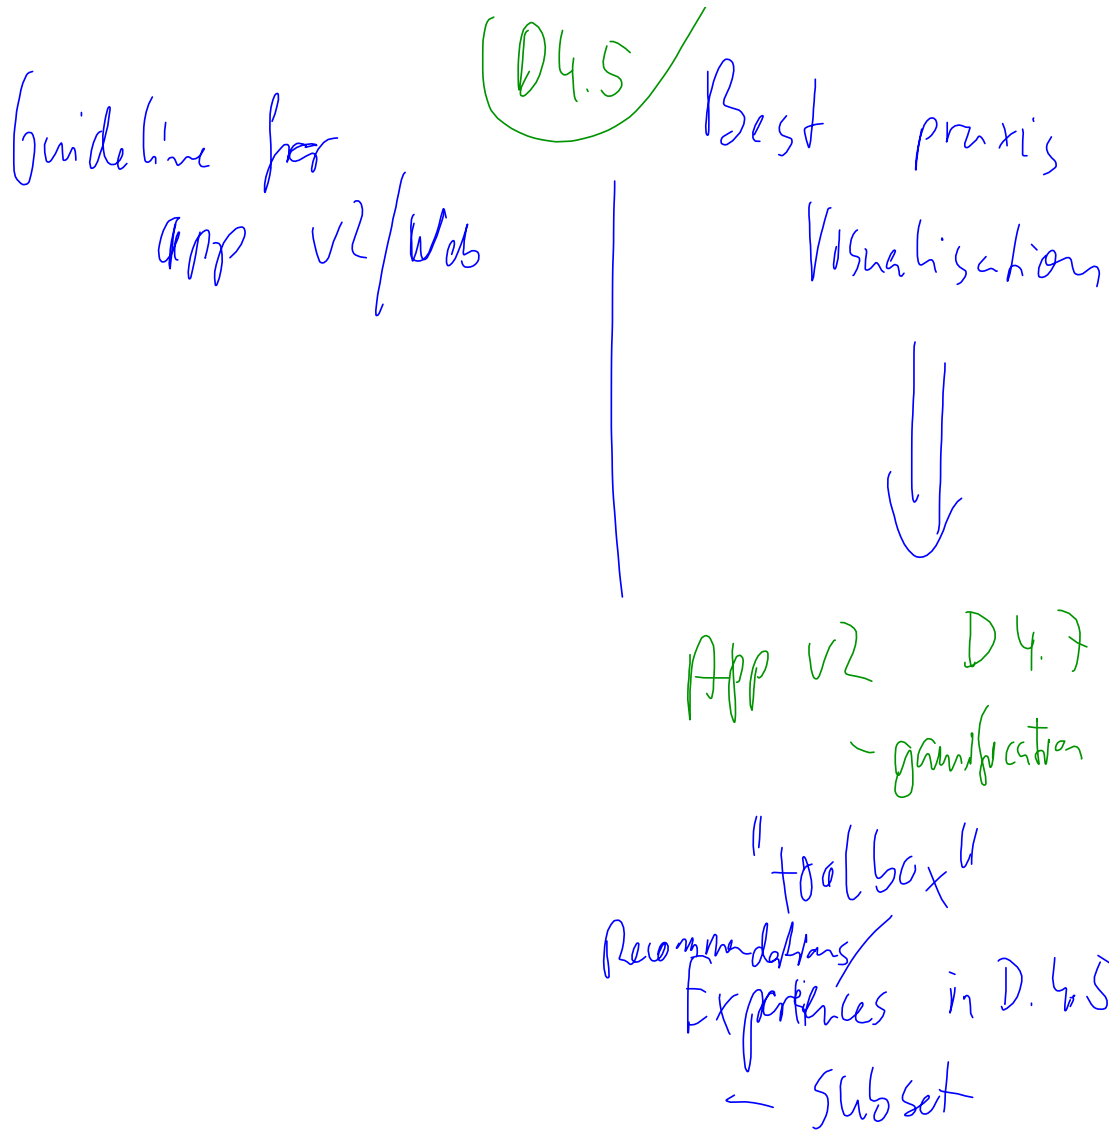 D4.5
Guideline for
app v2/Web
Best praxis
Visualisation
App v2 D 4.7
- gamification
"toolbox"
Recommendations/
Experiences in D.4.5
- subset